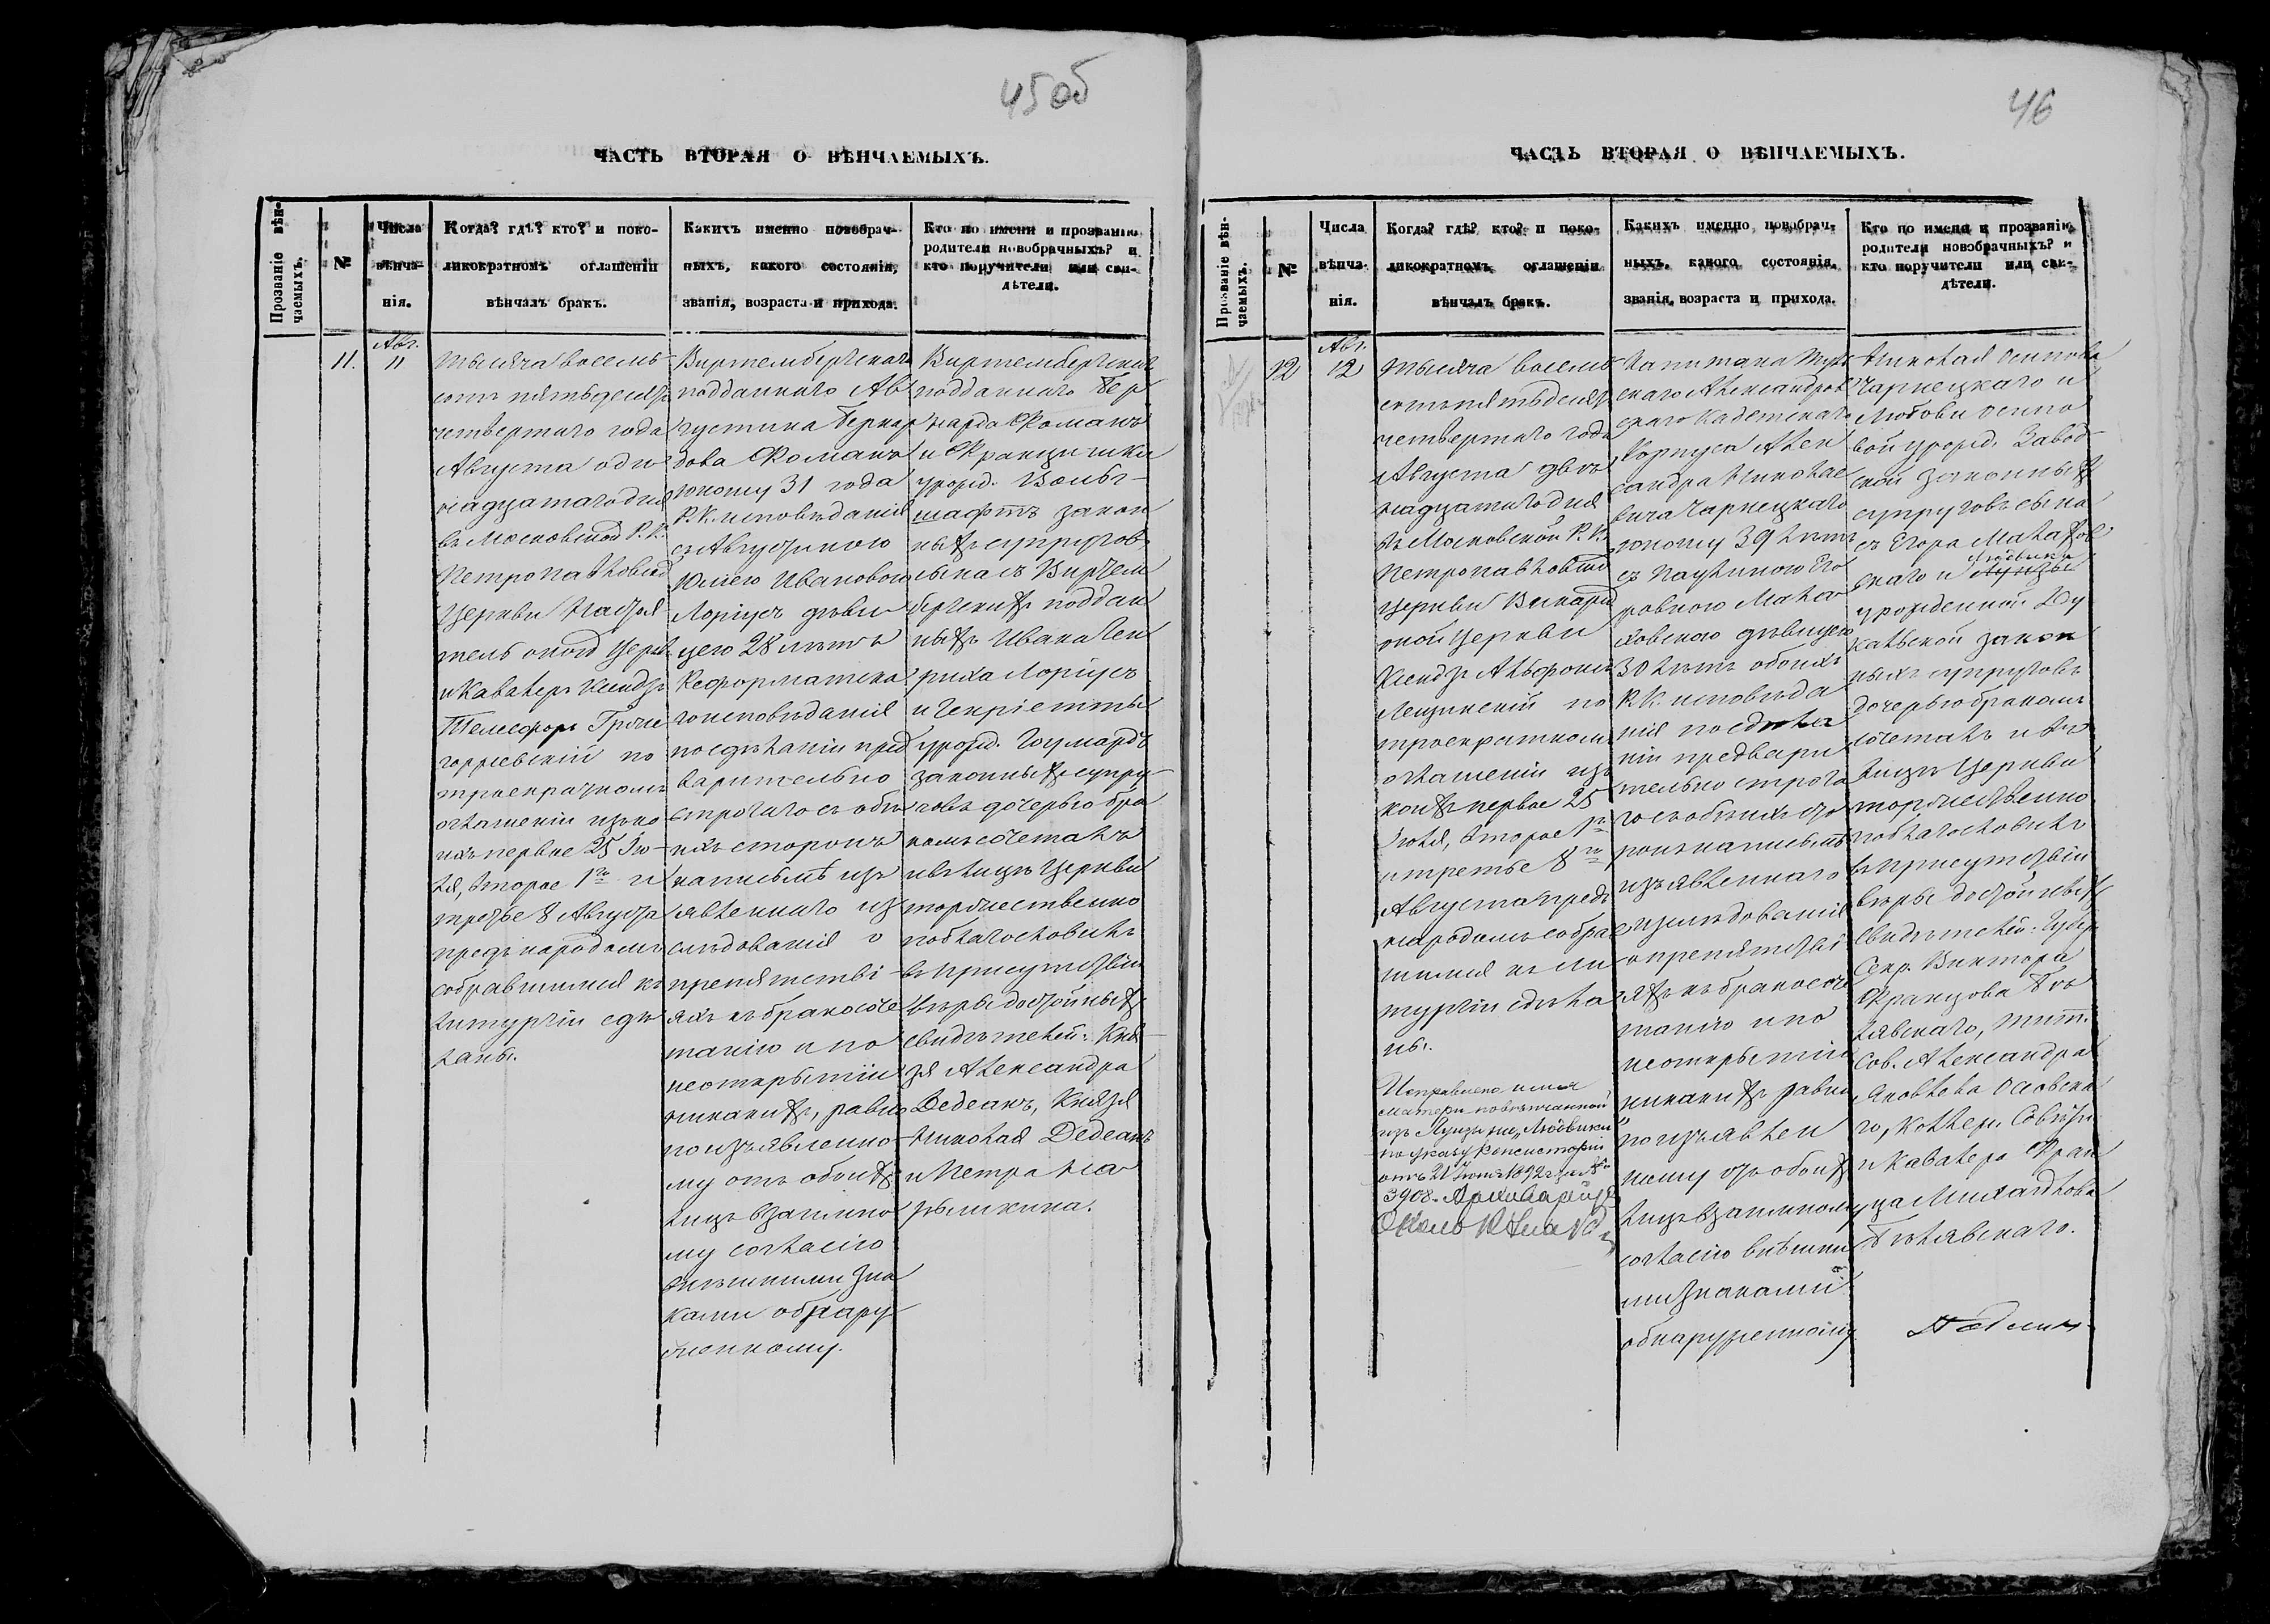 45 об
ЧАСТЬ ВТОРАЯ О ВѢНЧАЕМЫХЪ.
Прозваніе вѣн-
чаемыхъ.
№
Числа
вѣнча-
нія.
Когда? гдѣ? кто? и поко-
ликократномъ оглашеніи
вѣнчалъ бракъ.
Какихъ именно новобрач-
ныхъ, какого состоянія,
званія, возраста и прихода.
Кто по имени и прозванію
родители новобрачныхъ? и
кто поручители или сви-
дѣтели.
11.
Авг.
11
Тысяча восемь-
сотъ пятьдесятъ
четвертаго года
Августа оди-
надцатаго дня
въ Московской Р. К.
Петропавловской
Церкви Настоя
тель оной Церкви
и Кавалеръ Ксендзъ
Телесфоръ
по
троекратномъ
оглашеніи изъ ко
ихъ первое 25 Ію-
ля, второе 1го и
третье 8 Августа
предъ народомъ
собравшимся къ
литургіи сдѣ
ланы.
Виртембергскаго
подданнаго Ав
густина Бернар
дова Романъ
юношу 31 года
Р. К. исповѣданія
съ Августиною
Юліею Ивановою
Лоріусъ дѣви
цею 28 лѣтъ
Реформатска
го исповѣданія
по сдѣланіи пред
варительно
строгаго съ обѣ
ихъ сторонъ
на письмѣ изъ
явленнаго из
слѣдованія о
препятстві-
яхъ къ бракосоче
танію и по
неоткрытіи
никакихъ, равно
по изъявленно-
му отъ обоихъ
лицъ взаимно
му согласію
внѣшними зна
ками обнару
женному.
Виртембергскаго
подданнаго Бер
нарда Романъ
и Франциски
урожд. Вольг-
шафтъ закон
ныхъ супруговъ
сына съ Виртем
бергскихъ поддан
ныхъ Ивана Ген
риха Лоріусъ
и Генріетты
урожд.
законныхъ супру-
говъ дочерью бра
комъ сочеталъ
и въ лицѣ Церкви
торжественно
поблагословилъ
въ присутствіи
вѣры достойныхъ
свидѣтелей: Кня
зя Александра
Дедеанъ, Князя
Николая Дедеанъ
и Петра На
рышкина.
46
ЧАСТЬ ВТОРАЯ О ВѢНЧАЕМЫХЪ.
Прозваніе вѣн-
чаемыхъ.
№
Числа
вѣнча-
нія.
Когда? гдѣ? кто? и поко-
ликократномъ оглашеніи
вѣнчалъ бракъ.
Какихъ именно новобрач-
ныхъ, какого состоянія,
званія, возраста и прихода.
Кто по имени и прозванію
родители новобрачныхъ? и
кто поручители или сви-
дѣтели.
12
Авг.
12
Тысяча восемь
сотъ пятьдесятъ
четвертаго года
Августа двѣ
надцатаго дня
въ Московской Р. К.
Петропавловской
Церкви Викарій
оной Церкви
Ксендзъ Альфонсъ
Лещинскій по
троекратномъ
оглашеніи изъ
коихъ первое 25
Іюля, второе 1го
и третье 8го
Августа предъ
народомъ собра
вшимся къ ли
тургіи сдѣла
ны.
Исправлено имя
матери повѣнчанной
изъ Луизы на „Людвики“
по указу Консисторіи
отъ 21 Іюня 1892 г. за №
3908.
Капитана Туль
скаго Александров
скаго Кадетскаго
Корпуса Алек
сандра Николае
вича Чарнецкаго
юношу 39 лѣтъ
съ Паулиною Его
ровною Мала
ховскою дѣвицею
30 лѣтъ обоихъ
Р. К. исповѣда
нія по сдѣла
ніи предвари
тельно строга
го съ обѣихъ сто
ронъ на письмѣ
изъявленнаго
изслѣдованія
о препятстві
яхъ къ бракосоче
танію и по
неоткрытіи
никакихъ равно
по изъявлен
ному отъ обоихъ
лицъ взаимному
согласію внѣшни
ми знаками
обнаруженному
Николая Осипова
Чарнецкаго и
Любови Осипо
вой урожд. Завод-
ской законныхъ
супруговъ сына
съ Егора Малахов
скаго и Луизы
Людвики
урожденной
законныхъ супруговъ
дочерью бракомъ
сочеталъ и въ
лицѣ Церкви
торжественно
поблагословилъ
въ присутствіи
вѣры достойныхъ
свидѣтелей: Губер.
Секр. Виктора
Францова Бѣ
лявскаго, Тит.
Сов. Александра
Яковлева Осовска
го, Коллеж. Совѣтн.
и Кавалера Фран
ца Михайлова
Бѣлявскаго.